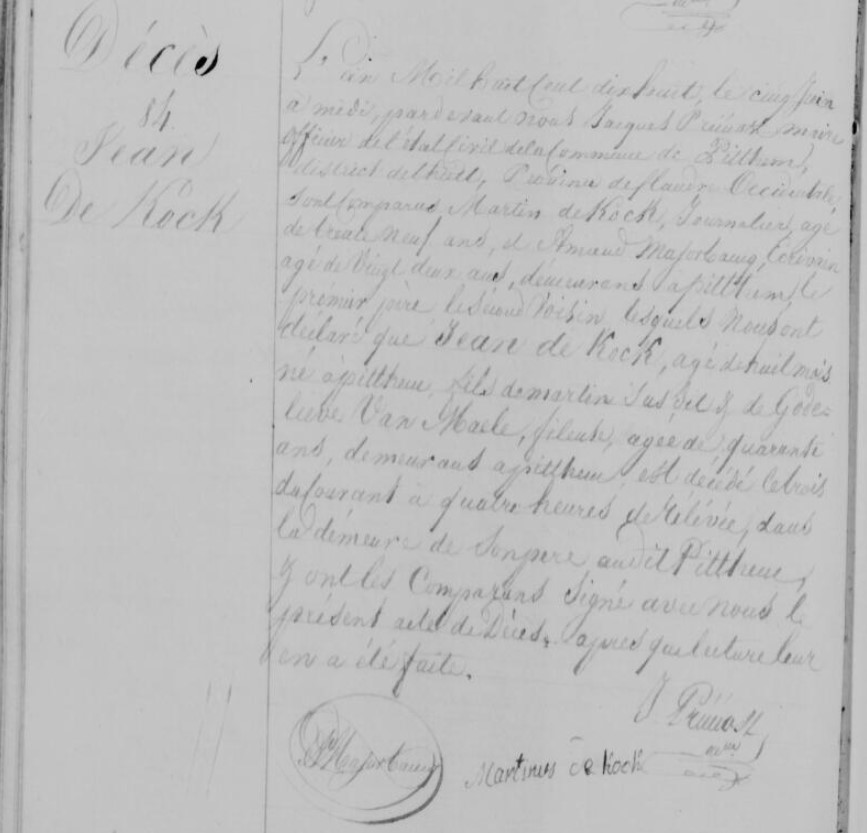 Décès
84
Jean
De Kock
L'an Mil huit Cent dix huit, le cinq Juin
a midi, pardevant Nous Jacques Prüvost maire
officier de l'état Civil de la Commune de Pitthem,
district de thielt, Province de flandre Occidentale,
Sont Comparus Martin de Kock, Journalier, agé
de trente Neuf ans, et Amand Majorbancq, Ecrivain
agé de Vingt deux ans, démeurans a pitthem, le
prémier père, le second Voisin, lesquels Nous ont
déclaré que Jean de Kock, agé de huit mois
né à pitthem, fils de martin Susdit & de Gode=
lieve Van Maele, fileuse, agée de quarante
ans, demeurans a pitthem, est décédé le trois
du Courant à quatre heures de rélévée, dans
la démeure de Son pere, audit Pitthem,
& ont les Comparans Signé avec nous le
présent acte de Décès, apres que lecture leur
en a été faite.
J Prüvost
AMajorbancq
Martinus de Kock